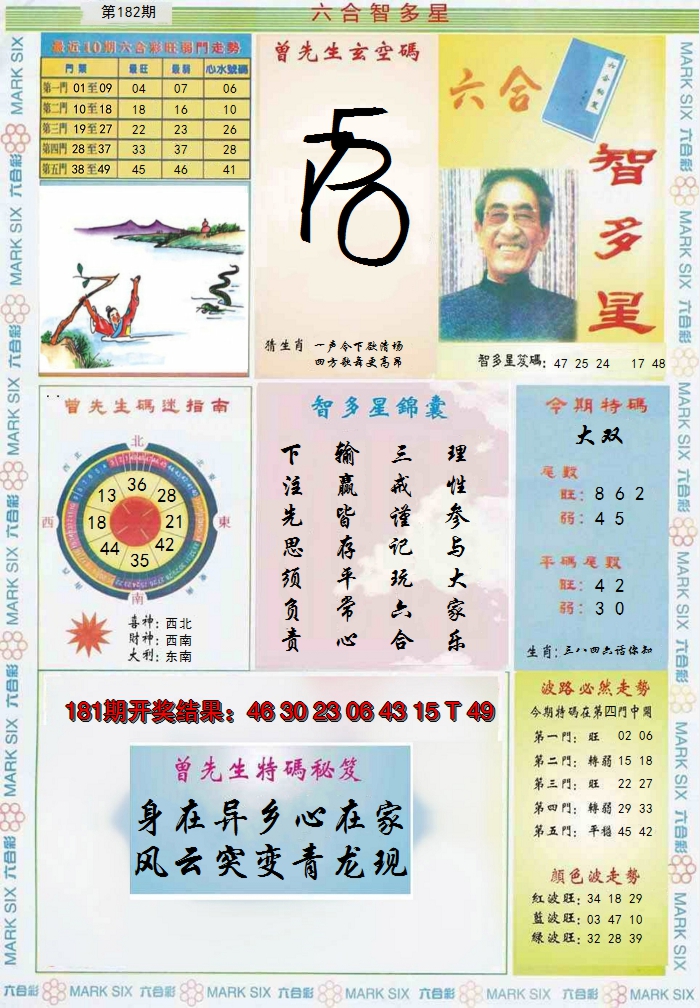 第182期
六合智多星
最近10期六合彩旺弱門走勢
門類 最旺 最弱 心水號碼
第一門 01至09 04 07 06
第二門 10至18 18 16 10
第三門 19至27 22 23 26
第四門 28至37 33 37 28
第五門 38至49 45 46 41
曾先生玄空碼
猜生肖 一声令下欲清场
四方歌舞更高昂
六合
智多星
智多星笈碼: 47 25 24 17 48
曾先生碼迷指南
北
西北
東北
西
東
南
36
13
28
18
21
44
42
35
喜神: 西北
财神: 西南
大利: 东南
智多星錦囊
理性参与大家乐
三戒谨记玩六合
输赢皆存平常心
下注先思须负责
今期特碼
大双
尾數
旺: 8 6 2
弱: 4 5
平碼尾數
旺: 4 2
弱: 3 0
生肖: 三八四六话你知
181期开奖结果: 46 30 23 06 43 15 T 49
曾先生特碼秘笈
身在异乡心在家
风云突变青龙现
波路必然走勢
今期特碼在第四門中開
第一門: 旺 02 06
第二門: 轉弱 15 18
第三門: 旺 22 27
第四門: 轉弱 29 33
第五門: 平穩 45 42
顏色波走勢
紅波旺: 34 18 29
藍波旺: 03 47 10
綠波旺: 32 28 39
MARK SIX 六合彩